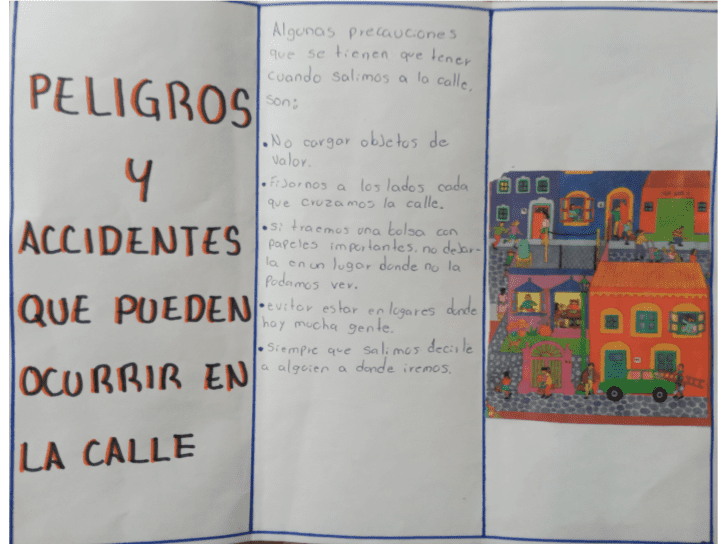 PELIGROS
Y
ACCIDENTES
QUE PUEDEN
OCURRIR EN
LA CALLE
Algunas precauciones
que se tienen que tener
cuando salimos a la calle,
son:
• No cargar objetos de
valor.
• Fijarnos a los lados cada
que cruzamos la calle.
• si traemos una bolsa con
papeles importantes, no dejar-
la en un lugar donde no la
podamos ver.
• evitar estar en lugares donde
hay mucha gente.
• Siempre que salimos decirle
a alguien a donde iremos.